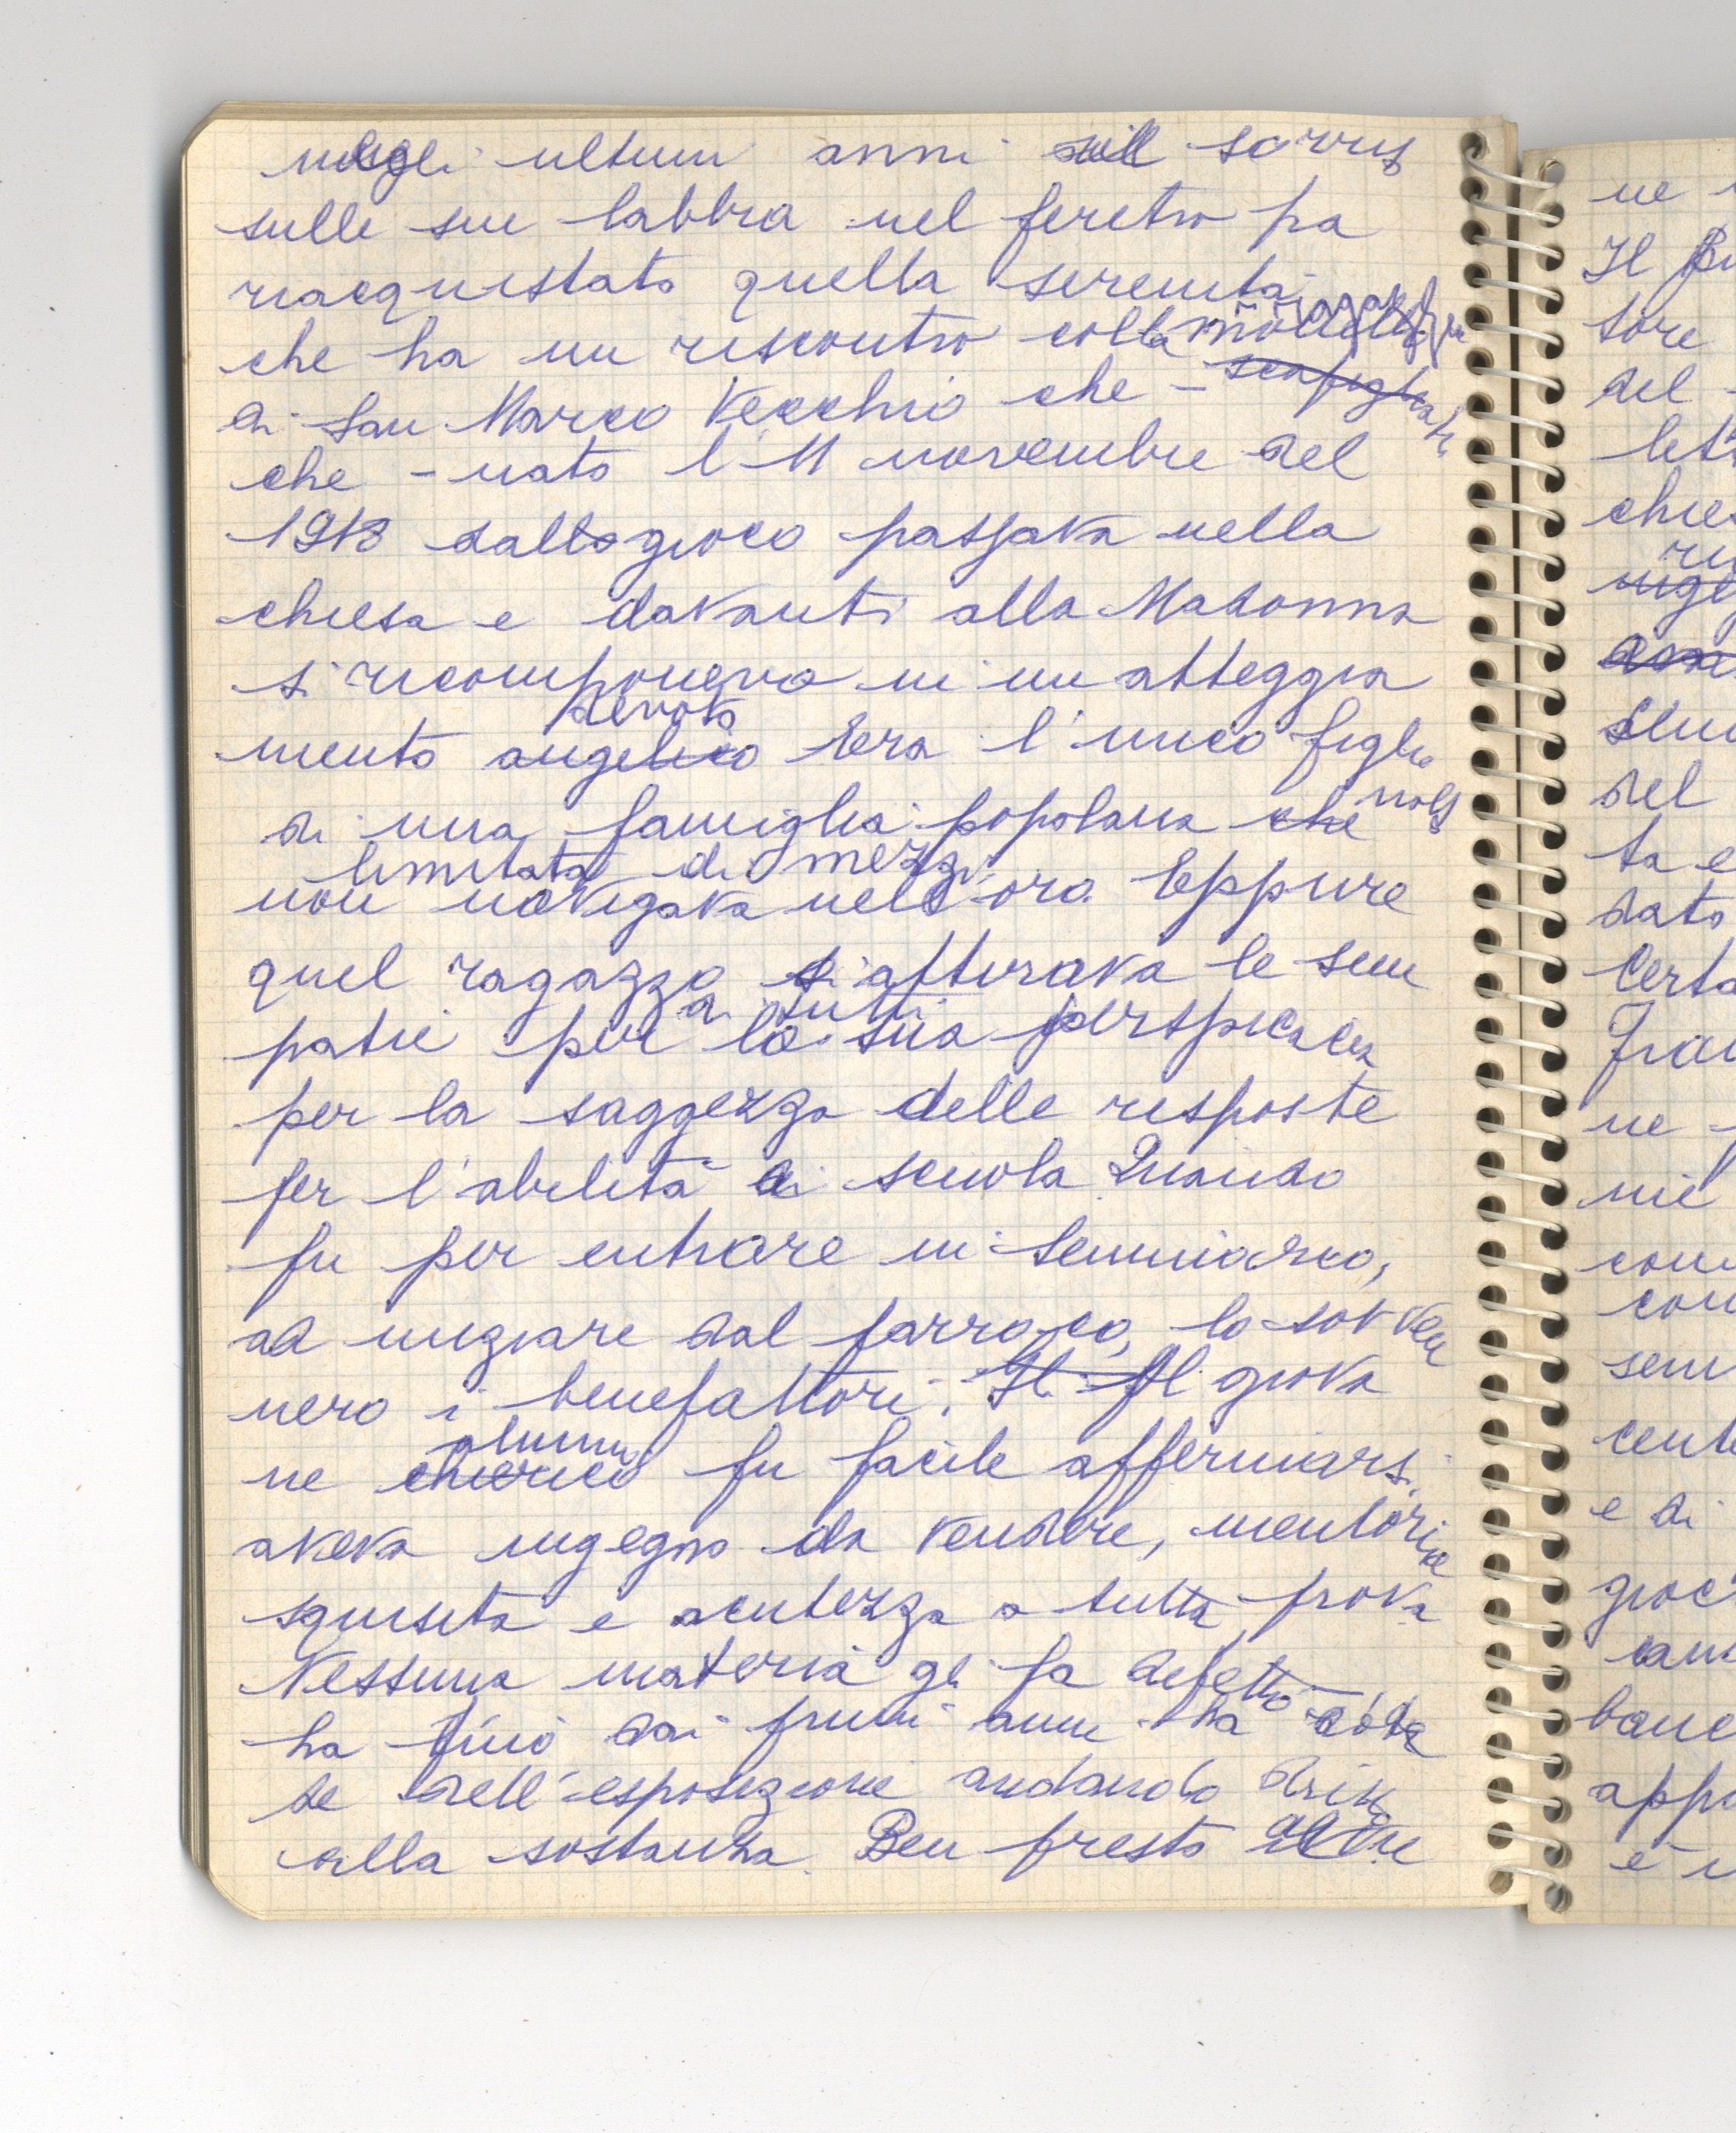 negli ultimi anni sorriso
sulle sue labbra nel feretro ha
riacquistato quella serenità
ragazzo
che ha un riscontro colla
di San Marco Vecchio che - scapigliato
che - nato l'11 novembre del
1913 dal gioco passava nella
chiesa e davanti alla Madonna
si ricomponeva in un atteggia
devoto
mento angelico Era l'unico figlio
di una famiglia popolana che molto
limitata di mezzi
non navigava nell'oro. Eppure
quel ragazzo si attirava le sim
di tutti
patie per la sua perspicacia
per la saggezza delle risposte
per l'abilità di scuola Quando
fu per entrare in Seminario,
ad iniziare dal parroco, lo sovven
nero i benefattori. Il Al giova
alunno
ne chierico fu facile affermarsi.
aveva ingegno da vendere, memoria
squisita e acutezza a tutta prova
Nessuna materia gli fa difetto
ha fino dai primi anni ha la do
te dell'esposizione andando dritto
alla sostanza. Ben presto
ne
Il
tore
del
chie
del
ta e
dato
Certo
ne
nie
con
sem
e di
gioc
appu